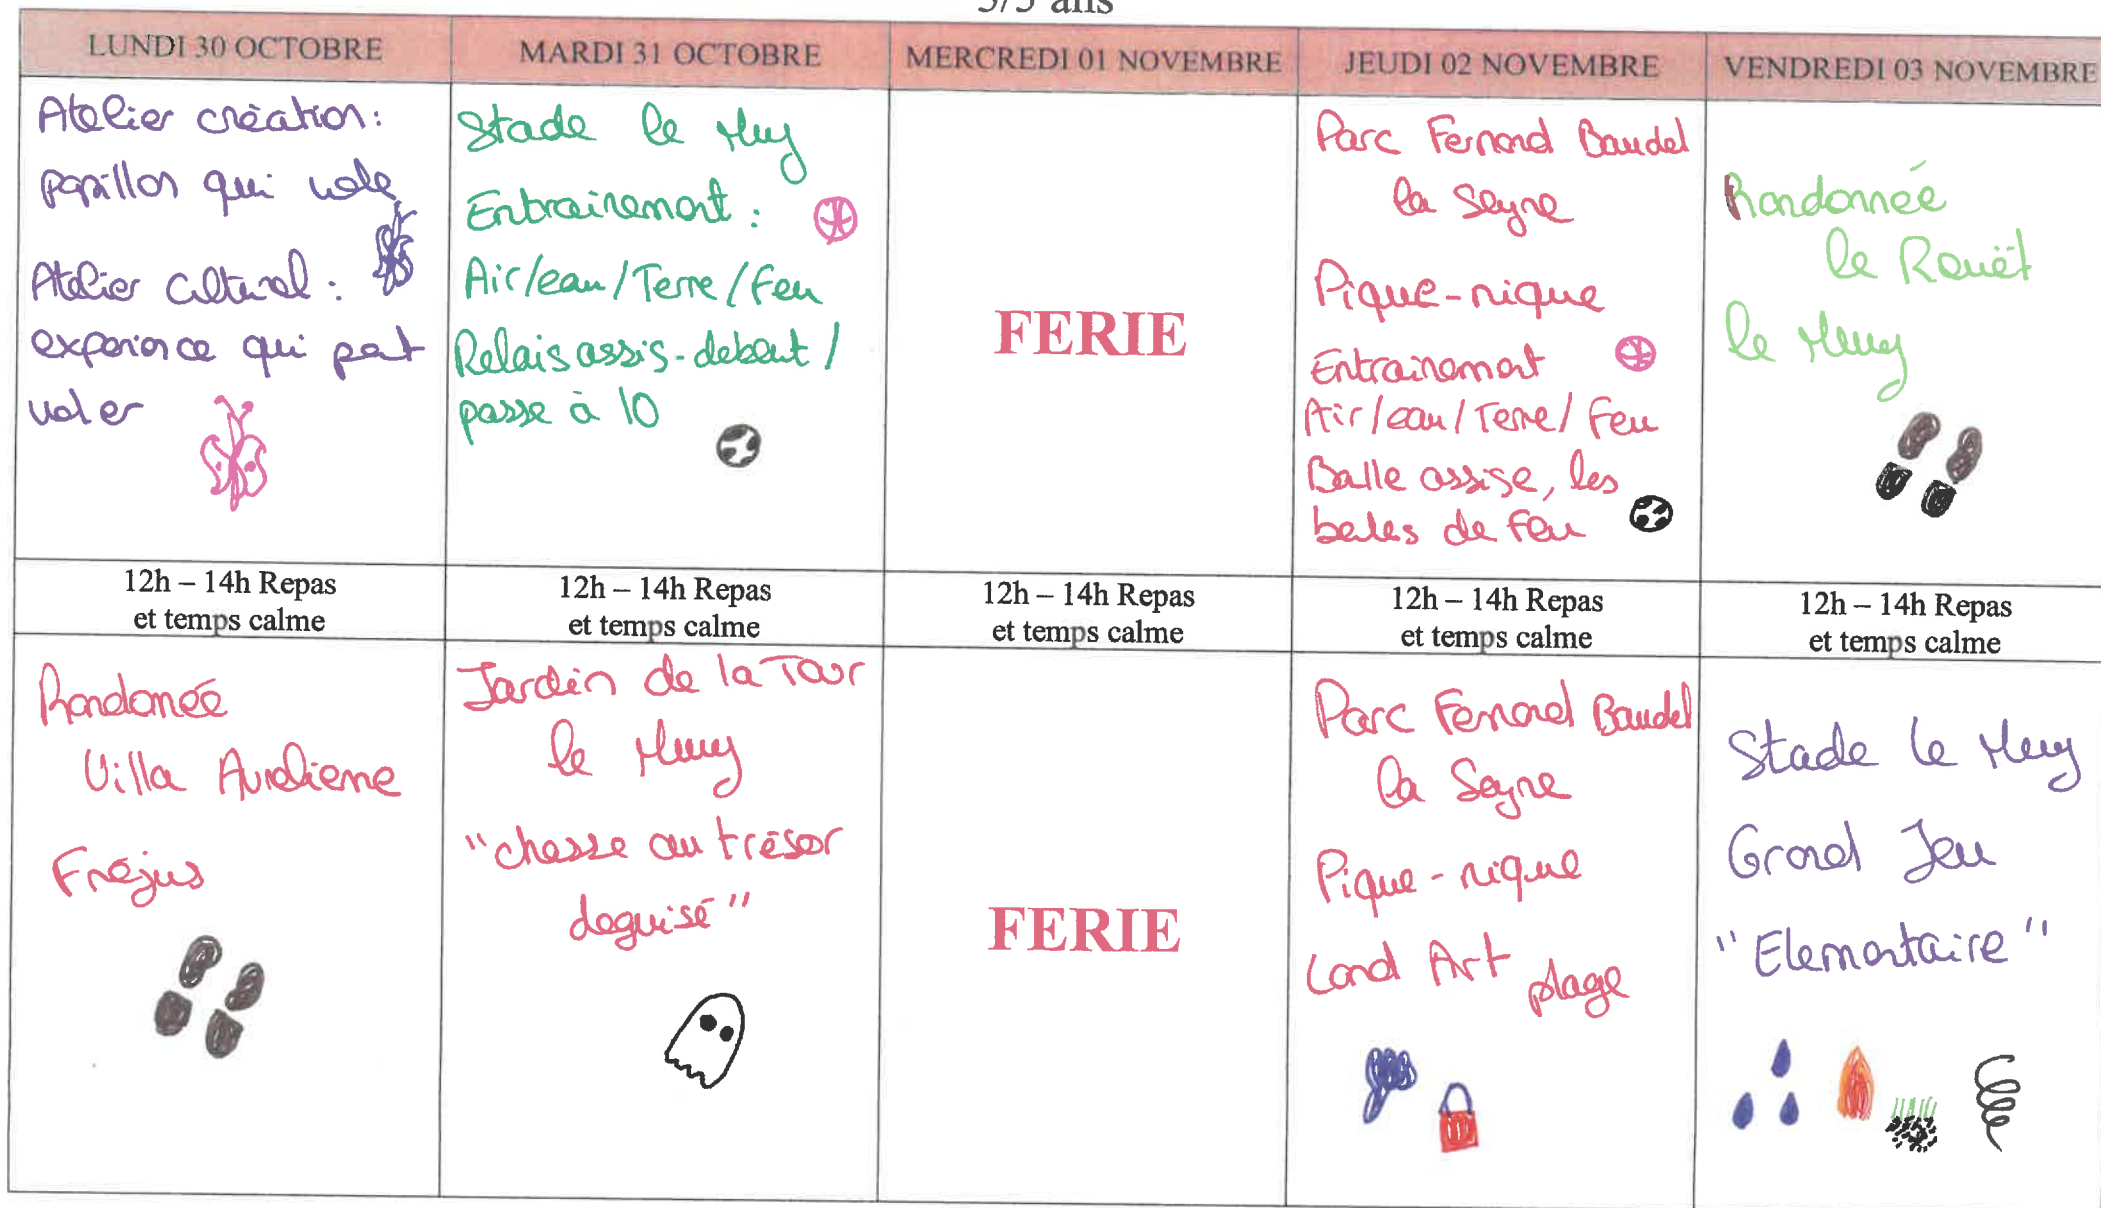 3/5 ans
LUNDI 30 OCTOBRE
MARDI 31 OCTOBRE
MERCREDI 01 NOVEMBRE
JEUDI 02 NOVEMBRE
VENDREDI 03 NOVEMBRE
Atelier création:
papillon qui vole
Atelier culturel :
experience qui peut
voler
Stade le Muy
Entrainement :
Air/eau/Terre/Feu
Relais assis-debout /
passe à 10
FERIE
Parc Fernand Baudel
la Seyne
Pique-nique
Entrainement
Air/eau/Terre/Feu
Balle assise, les
balles de feu
Randonnée
le Rouët
le Muy
12h – 14h Repas
et temps calme
12h – 14h Repas
et temps calme
12h – 14h Repas
et temps calme
12h – 14h Repas
et temps calme
12h – 14h Repas
et temps calme
Randonée
Villa Aurelienne
Fréjus
Jardin de la Tour
le Muy
"chasse au trésor
deguisé"
FERIE
Parc Fernand Baudel
la Seyne
Pique-nique
Land Art plage
Stade le Muy
Grand Jeu
"Elementaire"